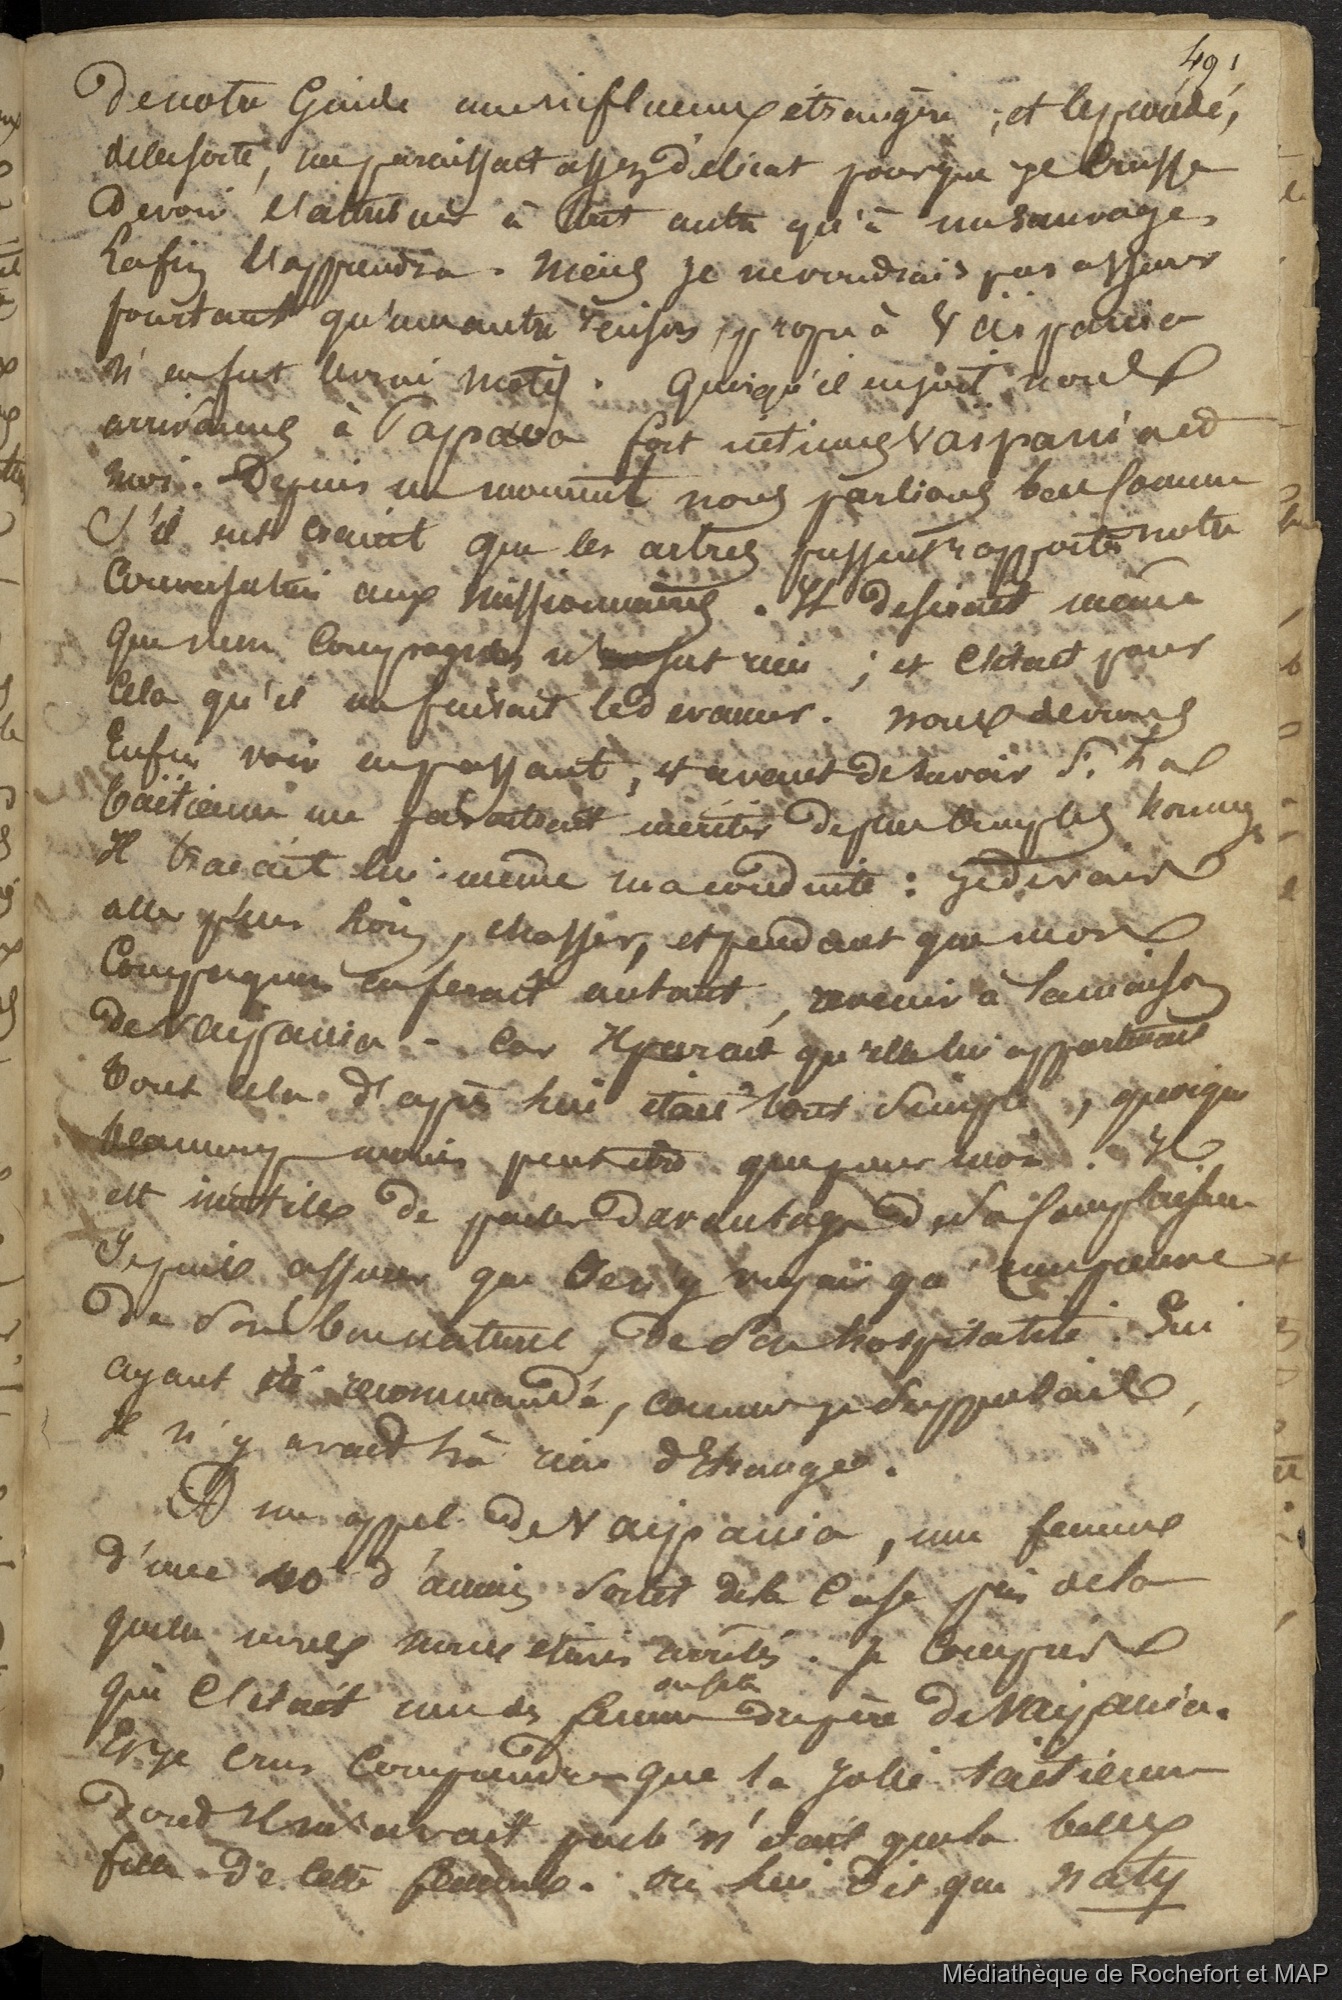 491
De notre Guide une influence étrangère ; et le procédé,
de la sorte, me paraissait assez délicat pour que je crusse
Devoir l'attribuer à tout autre qu'à un sauvage,
Enfin l'apprendra. Mais je ne voudrais pas assurer
pourtant qu'une autre raison, propre à Vaïpania
n'en fut le vrai motif. Quoiqu'il en soit nous
arrivâmes à Papava fort intimes Vaïpania et
moi. Depuis un moment nous parlions bas comme
S'il eut craint que les arbres fussent rapporter notre
Conversation aux Missionnaires. Il desirait même
Que mon Compagnon n'en sut rien ; et C'était pour
Cela qu'il me faisait le devancer. nous devions
Enfin voir en passant, et avant de savoir si la
taïtienne me paraitrait mériter de plus amples hommages
Il traçait lui-même ma conduite : je devais
aller plus loin, chasser, et pendant que mon
Compagnon en ferait autant, revenir à la maison
de Vaïpania. Car Il parait qu'elle lui appartenait
tout cela d'après lui était tout simple, quoique
beaucoup moins peut être que pour moi. Il
est inutile de parler davantage de sa Complaisance
Je puis assurer que l'on n'y voyait qu'une preuve
De Son bon naturel, de Son hospitalité. Lui
ayant été recommandé, comme je Supposais,
Il n'y avait là rien d'étrange.
A un appel de Vaïpania, une femme
d'une 40e d'années Sortit de la Case près de la
quelle nous nous étions arrêtés. Je Compris
que C'était une des femmes du père de Vaïpania.
Et je crus Comprendre que la jolie taïtienne
dont Il m'avait parlé n'était que la belle
fille de cette femme. On lui dit que naty